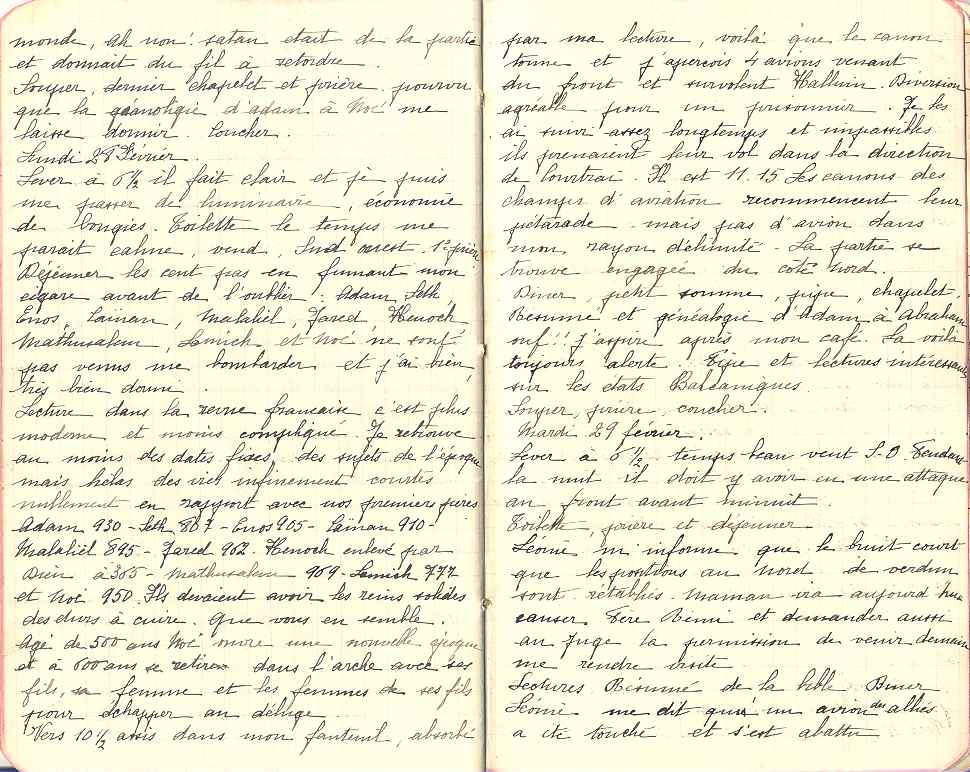 monde, ah non! satan etait de la partie
et donnait du fil à retordre.
Souper, dernier chapelet et prière pourvu
que la généologie d'adam à Noé me
laisse dormir. Coucher.
Lundi 28 Février.
Lever à 6½ il fait clair et je puis
me passer de luminaire, économie
de bougies. Toilette le temps me
parait calme, vend, Sud ouest. 1e prière
Dejeuner les cent pas en fumant mon
cigare avant de l'oublier: Adam, Seth,
Enos, Caïnan, Malaliël, Jared, Henoch
Mathusalem, Lamech et Noé ne sont
pas venus me bombarder et j'ai bien,
très bien dormi.
Lecture dans la revue francaise c'est plus
moderne et moins compliqué. Je retrouve
au moins des dates fixes, des sujets de l'époque
mais hélas des vies infinement courtes
nullement en rapport avec nos premiers pères
Adam 930 - Seth 807 - Enos 905 - Caïnan 910 -
Malaliël 895 - Jared 962. Henoch enlevé par
Dieu à 365 - Mathusalem 969 - Lamech 777
et Noé 950. Ils devaient avoir les reins solides
des durs à cuire. Que vous en semble.
Agé de 500 ans Noé ouvre une nouvelle époque
et à 600 ans se retire dans l'arche avec ses
fils, sa femme et les femmes de ses fils
pour échapper au déluge.
Vers 10½ assis dans mon fauteuil, absorbé
par ma lecture, voilà que le canon
tonne et j'apercois 4 avions venant
du front et survolent Halluin. Diversion
agréable pour un prisonnier. Je les
ai suivi assez longtemps et impassibles
ils prenaient leur vol dans la direction
de Courtrai. Il est 11.15 Les canons des
champs d'aviation recommencent leur
pétarade mais pas d'avion dans
mon rayon délimité - La partie se
trouve engagée du côté nord.
Diner, petit somme, pipe, chapelet.
Résumé et généalogie d'Adam à Abraham
ouf!! j'aspire après mon café. La voilà
toujours alerte. Pipe et lectures intéressantes
sur les états Balcaniques.
Souper, prière, coucher.
Mardi 29 février.
Lever à 6½ - temps beau vent S.O. Pendant
la nuit il doit y avoir eu une attaque
au front avant minuit.
Toilette, prière et dejeuner
Léonie m'informe que le bruit court
que les positions au nord de verdun
sont rétablis. Maman ira aujourd'hui
causer Père Rémi et demander aussi
au Juge la permission de venir demain
me rendre visite
Lectures Résumé de la bible Diner
Léonie me dit qu'un avion des alliés
a été touché et s'est abattu